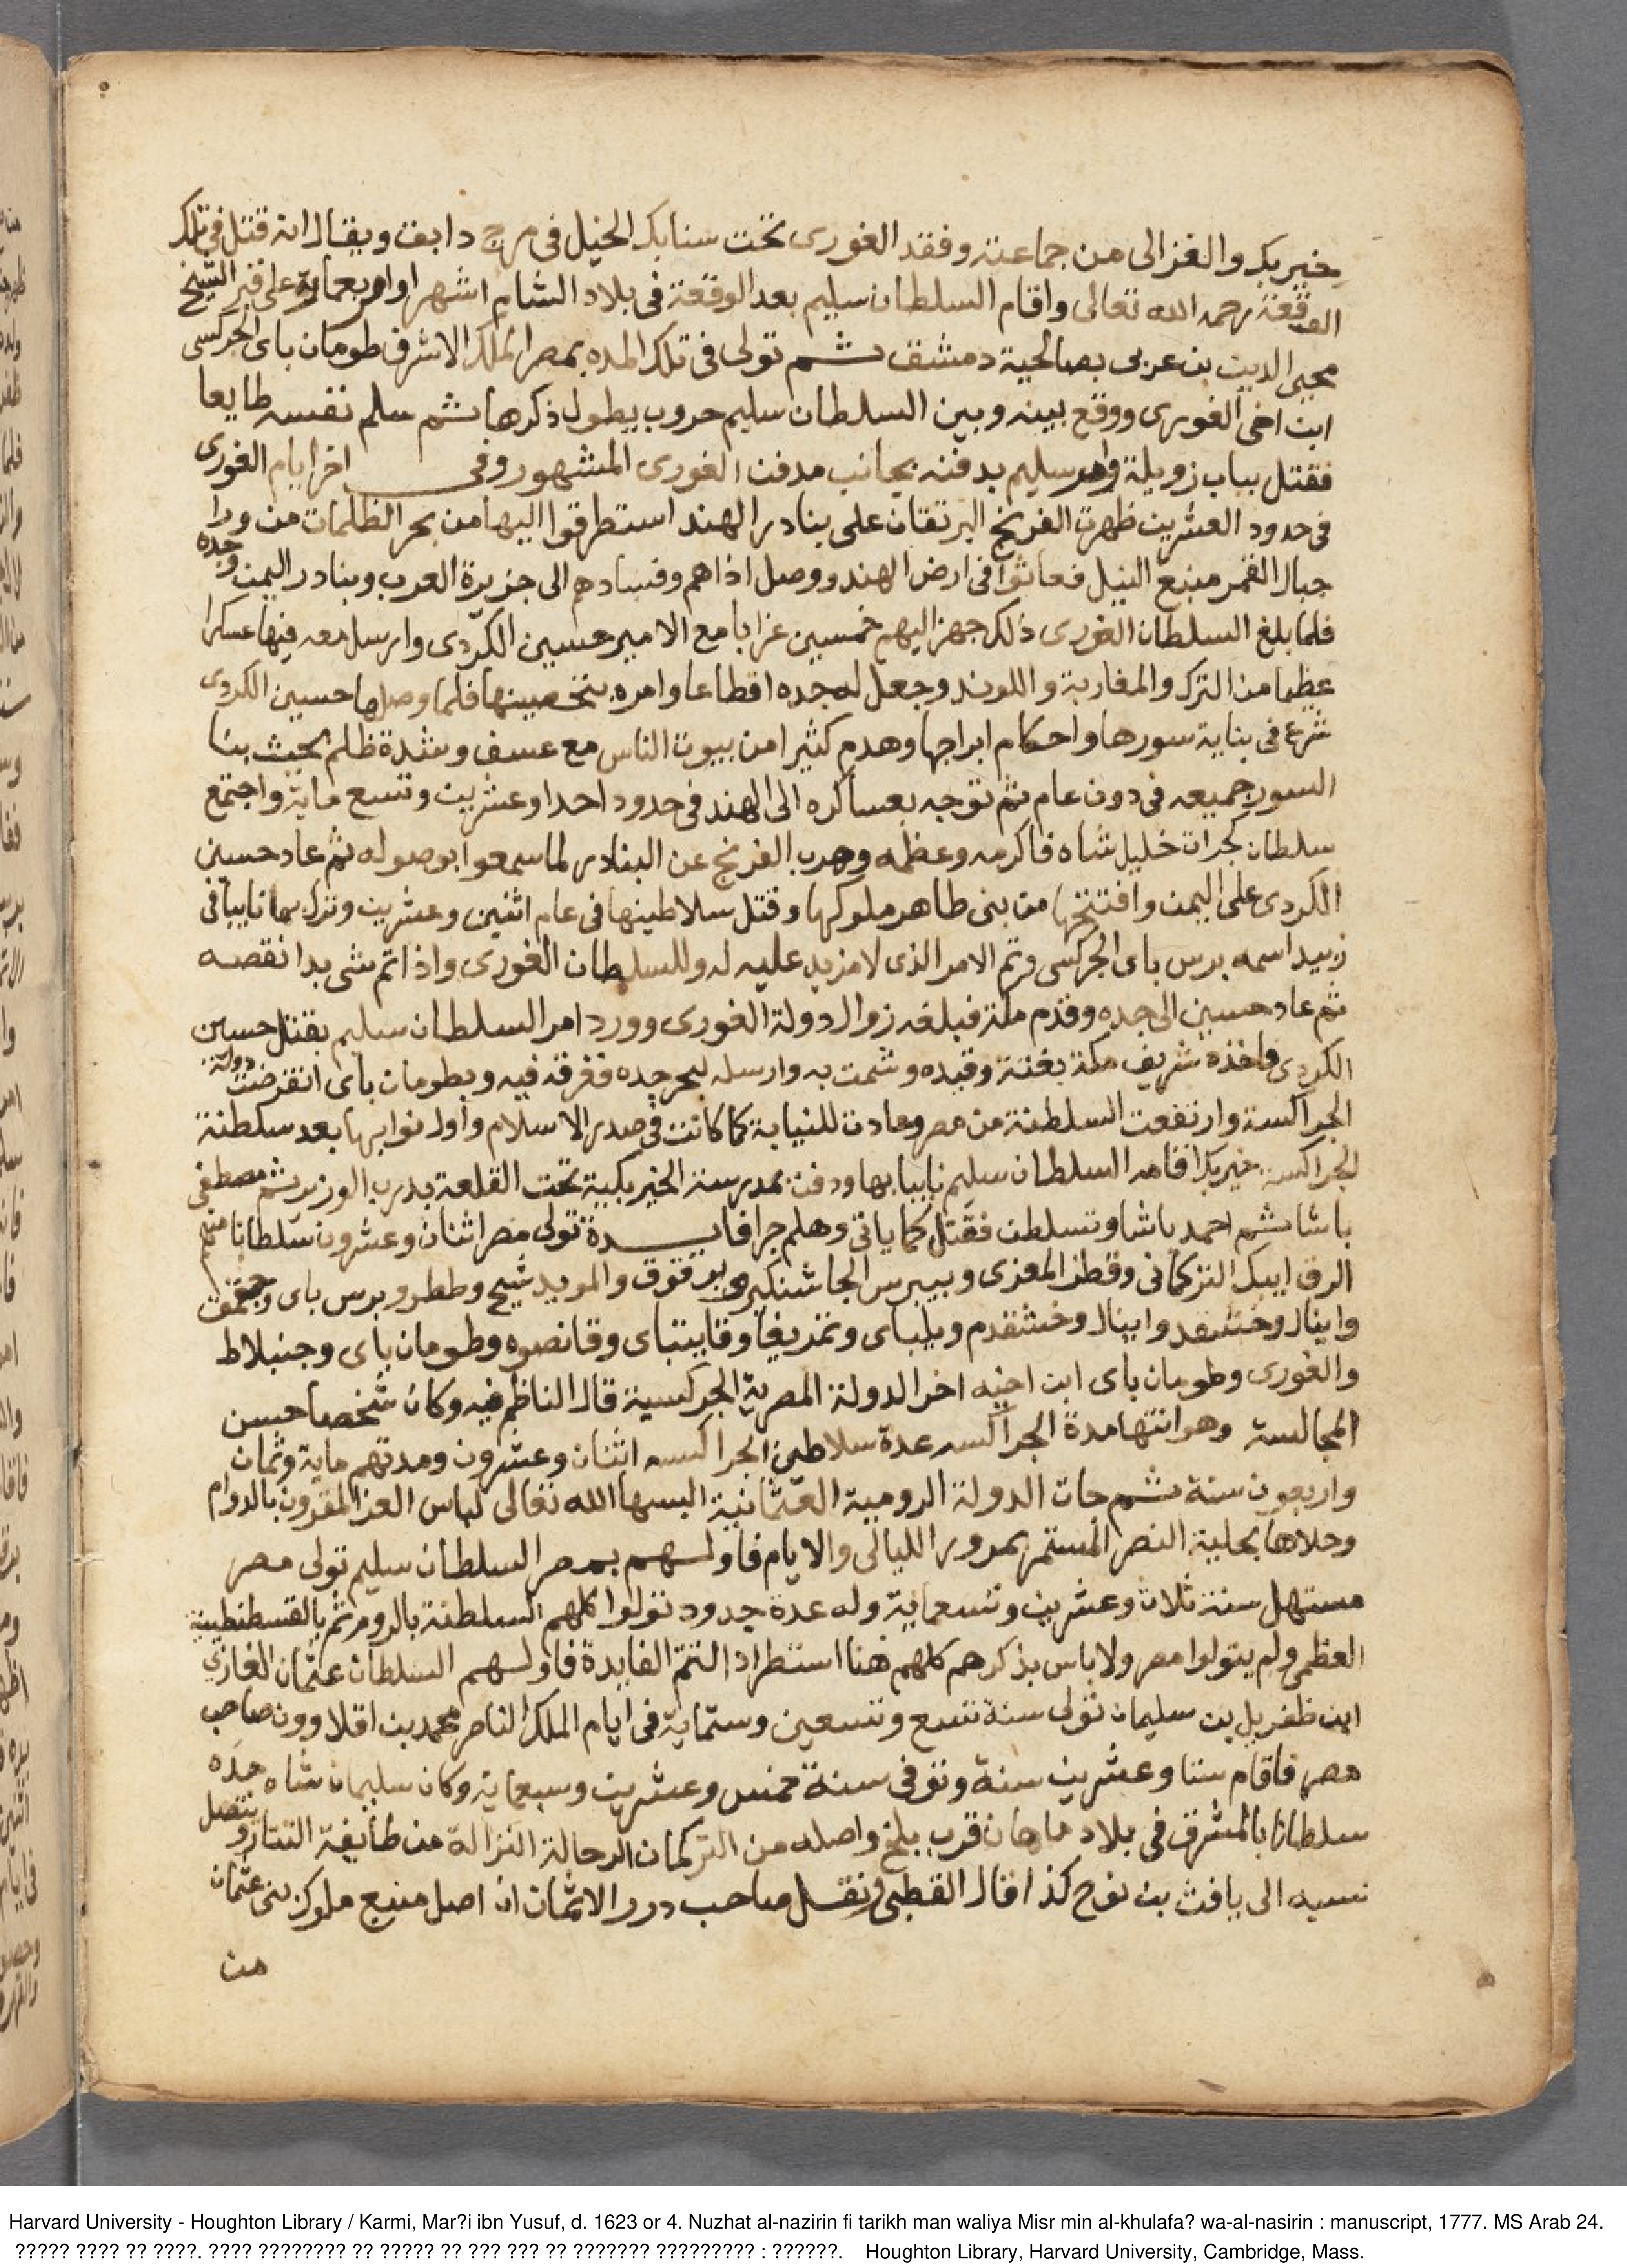 خيربك والغزالى من جماعته وفقد الغورى تحت سنابك الخيل فى مرج دابق ويقال انه قتل فى تلك
الوقعة رحمه الله تعالى واقام السلطان سليم بعد الوقعة فى بلاد الشام اشهرا وامر بعمارة على قبر الشيخ
محيى الدين بن عربى بصالحية دمشق ثم تولى فى تلك المده بمصر الملك الاشرف طومان باى الجركسى
ابن اخى الغورى ووقع بينه وبين السلطان سليم حروب يطول ذكرها ثم سلم نفسه طايعا
فقتل بباب زويلة وامر سليم بدفنه بجانب مدفن الغورى المشهور وفى اخر ايام الغورى
فى حدود العشرين ظهرت الفرنج البرتقان على بنادر الهند استطرقوا اليها من بحر الظلمات من ورا
جبال القمر منبع النيل فعاثوا فى ارض الهند ووصل اذاهم وفسادهم الى جزيرة العرب وبنادر اليمن وجده
فلما بلغ السلطان الغورى ذلك جهز اليهم خمسين غرابا مع الامير حسين الكردى وارسل معه فيها عسكرا
عظيما من الترك والمغاربة واللوند وجعل له جده اقطاعا وامره بتحصينها فلما وصلها حسين الكردى
شرع فى بناية سورها واحكام ابراجها وهدم كثيرا من بيوت الناس مع عسف وشدة ظلم بحيث بنا
السور جميعه فى دون عام ثم توجه بعساكره الى الهند فى حدود احدا وعشرين وتسع ماية واجتمع
سلطان كجرات خليل شاه فاكرمه وعظمه وهرب الفرنج عن البنادر لما سمعوا بوصوله ثم عاد حسين
الكردى على اليمن وافتتحها من بنى طاهر ملوكها وقتل سلاطينها فى عام اثنين وعشرين وترك بها نايبا فى
زبيد اسمه برس باى الجركسى وتم الامر الذى لا مزيد عليه له وللسلطان الغورى واذا تم شى بدا نقصه
ثم عاد حسين الى جده وقدم مكة فبلغه زوال دولة الغورى وورد امر السلطان سليم بقتل حسين
الكردى فاخذه شريف مكة بغتة وقيده وشمت به وارسله لبحر جده فغرقه فيه وبطومان باى انقرضت دولة
الجراكسة وارتفعت السلطنة من مصر وعادت للنيابة كما كانت فى صدر الاسلام واول نوابها بعد سلطنة
الجراكسه خيربك اقامه السلطان سليم نايبا بها ودفن بمدرسته الخيربكية تحت القلعة بدرب الوزير ثم مصطفى
باشا ثم احمد باشا وتسلطن فقتل كما ياتى وهلم جرا فايدة تولى مصر اثنان وعشرون سلطانا منهم
الرق ايبك التركمانى وقطز المعزى وبيبرس الجاشنكير وبرقوق والمويد شيخ وططر وبرس باى وجقمق
واينال وخشقد واينال وخشقدم ويلباى وتمربغا وقايتباى وقانصوه وطومان باى وجنبلاط
والغورى وطومان باى ابن اخيه اخر الدولة المصرية الجركسية قال الناظم فيه وكان شخصا حسن
المجالسة وهو انتها مدة الجراكسه عدة سلاطين الجراكسه اثنان وعشرون ومدتهم ماية وثمان
واربعون سنة ثم جات الدولة الرومية العثمانية البسها الله تعالى لباس العز المقرون بالدوام
وحلاها بحلية النصر المستمر بمرور الليالى والايام فاولهم بمصر السلطان سليم تولى مصر
مستهل سنة ثلاث وعشرين وتسعماية وله عدة جدود تولوا كلهم السلطنة بالروم ثم بالقسطنطينية
العظمى ولم يتولوا مصر ولا باس بذكرهم كلهم هنا استطرادا لتتم الفايدة فاولهم السلطان عثمان الغازى
ابن طغربل بن سليمان تولى سنة تسع وتسعين وستماية فى ايام الملك الناصر محمد بن اقلاوون صاحب
مصر فاقام ستا وعشرين سنة وتوفى سنة خمس وعشرين وسبعماية وكان سليمان شاه جده
سلطانا بالمشرق فى بلاد ماهان قرب بلخ واصله من التركمان الرحالة النزالة من طايفة التتار ويتصل
نسبه الى يافث بن نوح كذا قال القطبى ونقل صاحب درر الاثمان ان اصل منبع ملوك بنى عثمان
من
Harvard University - Houghton Library / Karmi, Mar?i ibn Yusuf, d. 1623 or 4. Nuzhat al-nazirin fi tarikh man waliya Misr min al-khulafa? wa-al-nasirin : manuscript, 1777. MS Arab 24.
????? ???? ?? ????. ???? ???????? ?? ????? ?? ??? ??? ?? ??????? ????????? : ??????. Houghton Library, Harvard University, Cambridge, Mass.